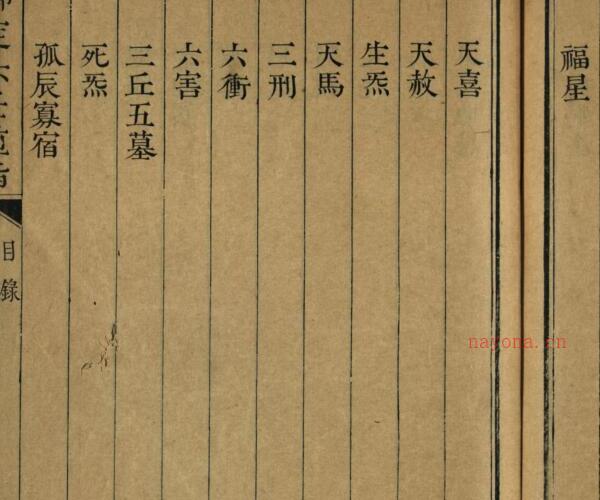 福星
天喜
天赦
生炁
天馬
三刑
六衝
六害
三丘五墓
死炁
孤辰寡宿
目錄
nayona.cn